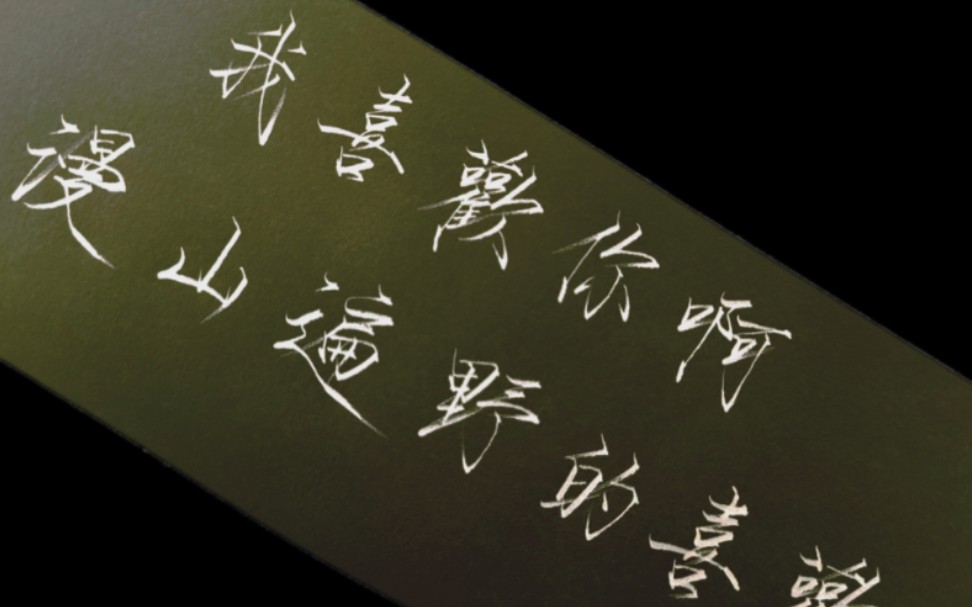 我喜歡你啊
漫山遍野的喜歡